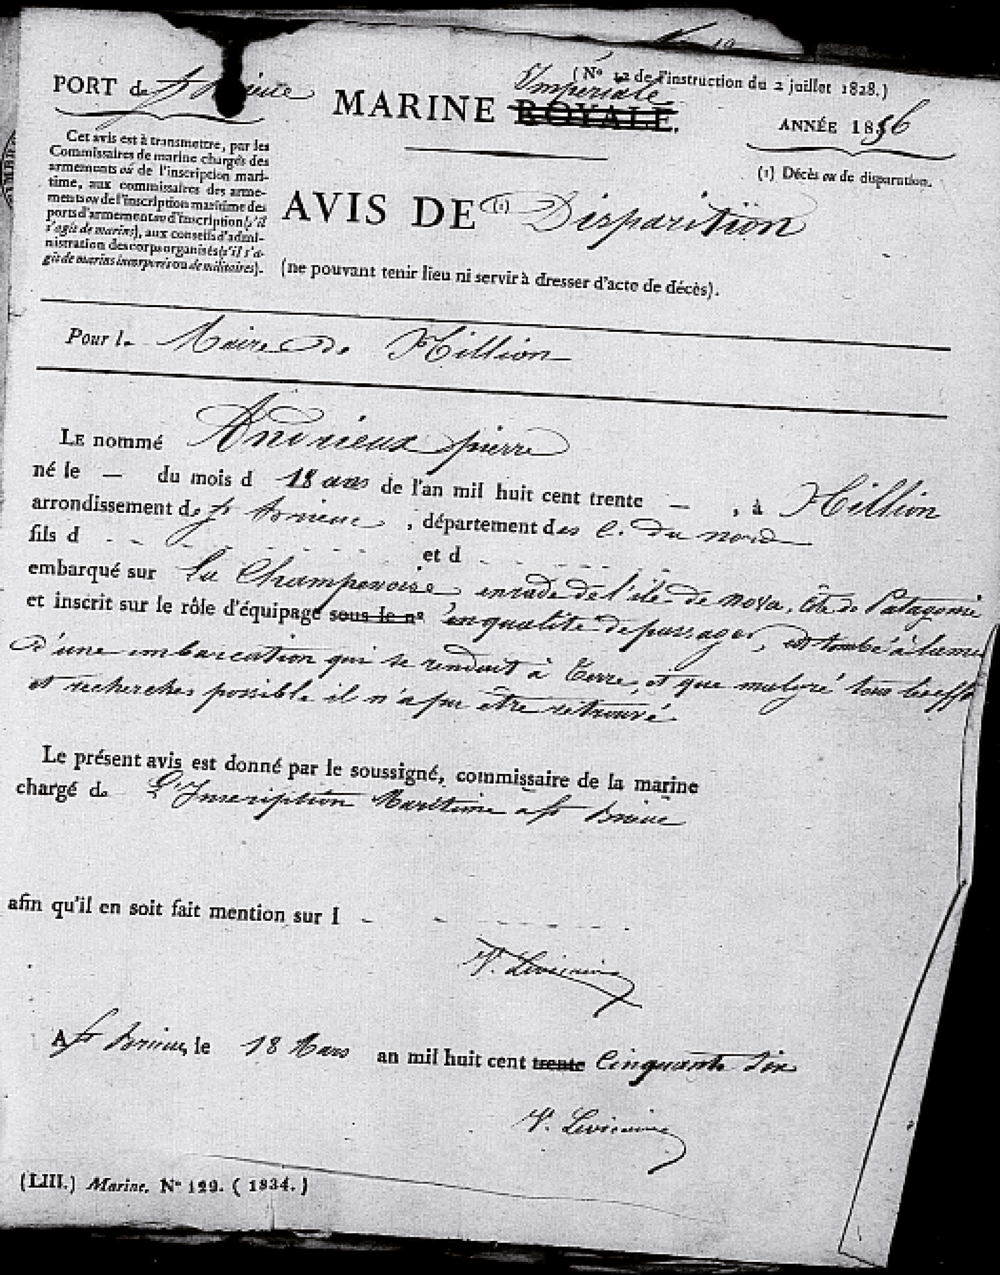 (N° 12 de l'instruction du 2 juillet 1828.)
PORT de St Brieuc
MARINE ROYALE. Impériale
ANNÉE 1856
(1) Décès ou de disparution.
Cet avis est à transmettre, par les
Commissaires de marine chargés des
armements ou de l'inscription mari-
time, aux commissaires des arme-
ments ou de l'inscription maritime des
ports d'armement ou d'inscription (s'il
s'agit de marins), aux conseils d'admi-
nistration des corps organisés (s'il s'a-
git de marins incorporés ou de militaires).
AVIS DE (1) Disparition
(ne pouvant tenir lieu ni servir à dresser d'acte de décès).
Pour le Maire de Hillion
LE nommé Andrieux pierre
né le — du mois d 18 ans de l'an mil huit cent trente — , à Hillion
arrondissement de St brieuc , département des C. du nord
fils d et d
embarqué sur La Champenoise en rade de l'île de nova, Côte de Patagonie
et inscrit sur le rôle d'équipage sous le n° en qualité de passager, est tombé à la mer
d'une embarcation qui se rendait à Terre, et que malgré tous les efforts
et recherches possible il n'a pu être retrouvé
Le présent avis est donné par le soussigné, commissaire de la marine
chargé de L'Inscription Maritime a St Brieuc
afin qu'il en soit fait mention sur l
A St Brieuc, le 18 Mars an mil huit cent trente Cinquante Six
(LIII.) Marine. N° 129. (1834.)